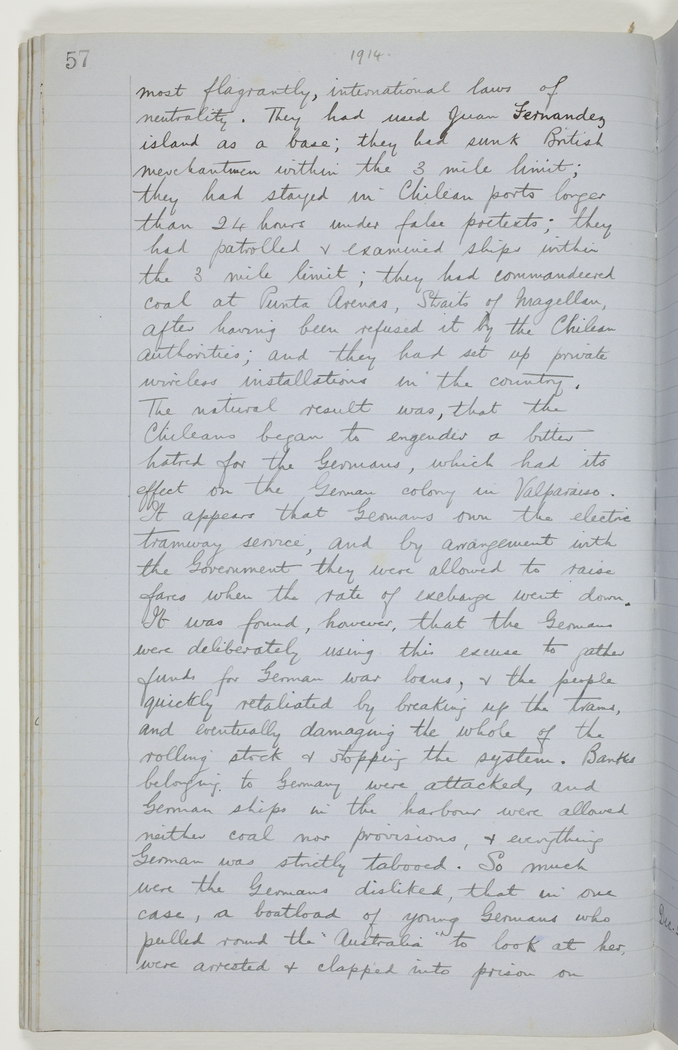 57
1914.
most flagrantly, international laws of
neutrality. They had used Juan Fernandez
island as a base; they had sunk British
merchantmen within the 3 mile limit;
they had stayed in Chilean ports longer
than 24 hours under false pretexts; they
had patrolled & examined ships within
the 3 mile limit; they had commandeered
coal at Punta Arenas, Straits of Magellan,
after having been refused it by the Chilean
authorities; and they had set up private
wireless installations in the country.
The natural result was, that the
Chileans began to engender a bitter
hatred for the Germans, which had its
effect on the German colony in Valparaiso.
It appears that Germans own the electric
tramway service, and by arrangement with
the Government they were allowed to raise
fares when the rate of exchange went down.
It was found, however, that the Germans
were deliberately using this excuse to gather
funds for German war loans, & the people
quickly retaliated by breaking up the trams,
and eventually damaging the whole of the
rolling stock & stopping the system. Banks
belonging to Germany were attacked, and
German ships in the harbour were allowed
neither coal nor provisions, & everything
German was strictly tabooed. So much
were the Germans disliked, that in one
case, a boatload of young Germans who
pulled round the "Australia" to look at her,
were arrested & clapped into prison on